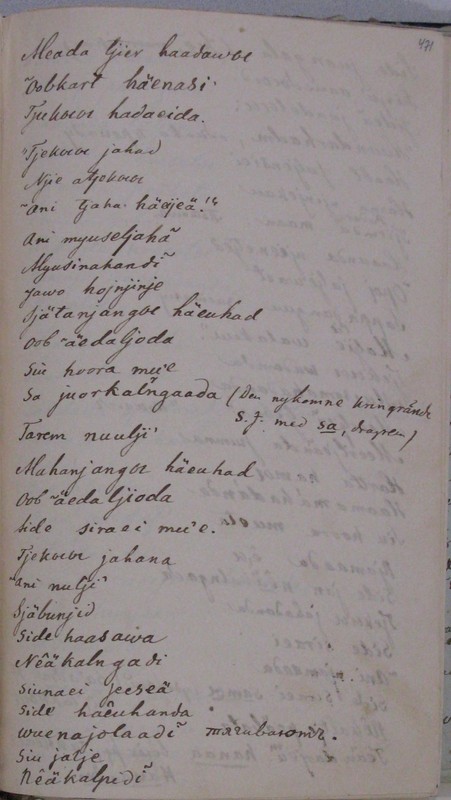 471
Meada tjier haadawoe
Oobkart häenasi
Tjukwoe hadaeida.
Tjekwoe jahad
Njie atjekwoe
"Ani tjaha häejeä!"
Ani myuseljahä
Myusinahandi
Jawo hojnjinje
Sjätanjangoe häeuhad
Oob äedaljoda
Siu hoora mu'e
Sa juorkalngaada (Den nykomne kringrände
S.J. med sa,
Tarem nuulji
Mahanjangoe häeuhad
Oob äedaljioda
Side siraei mu'e.
Tjekwoe jahana
"Ani nulji"
Sjäbunjid
Side haasawa
Nêäkalngadi
Siunaei jeeseä
Side häeuhanda
wuenajolaadi
Siu jalje
Nêäkalpidi